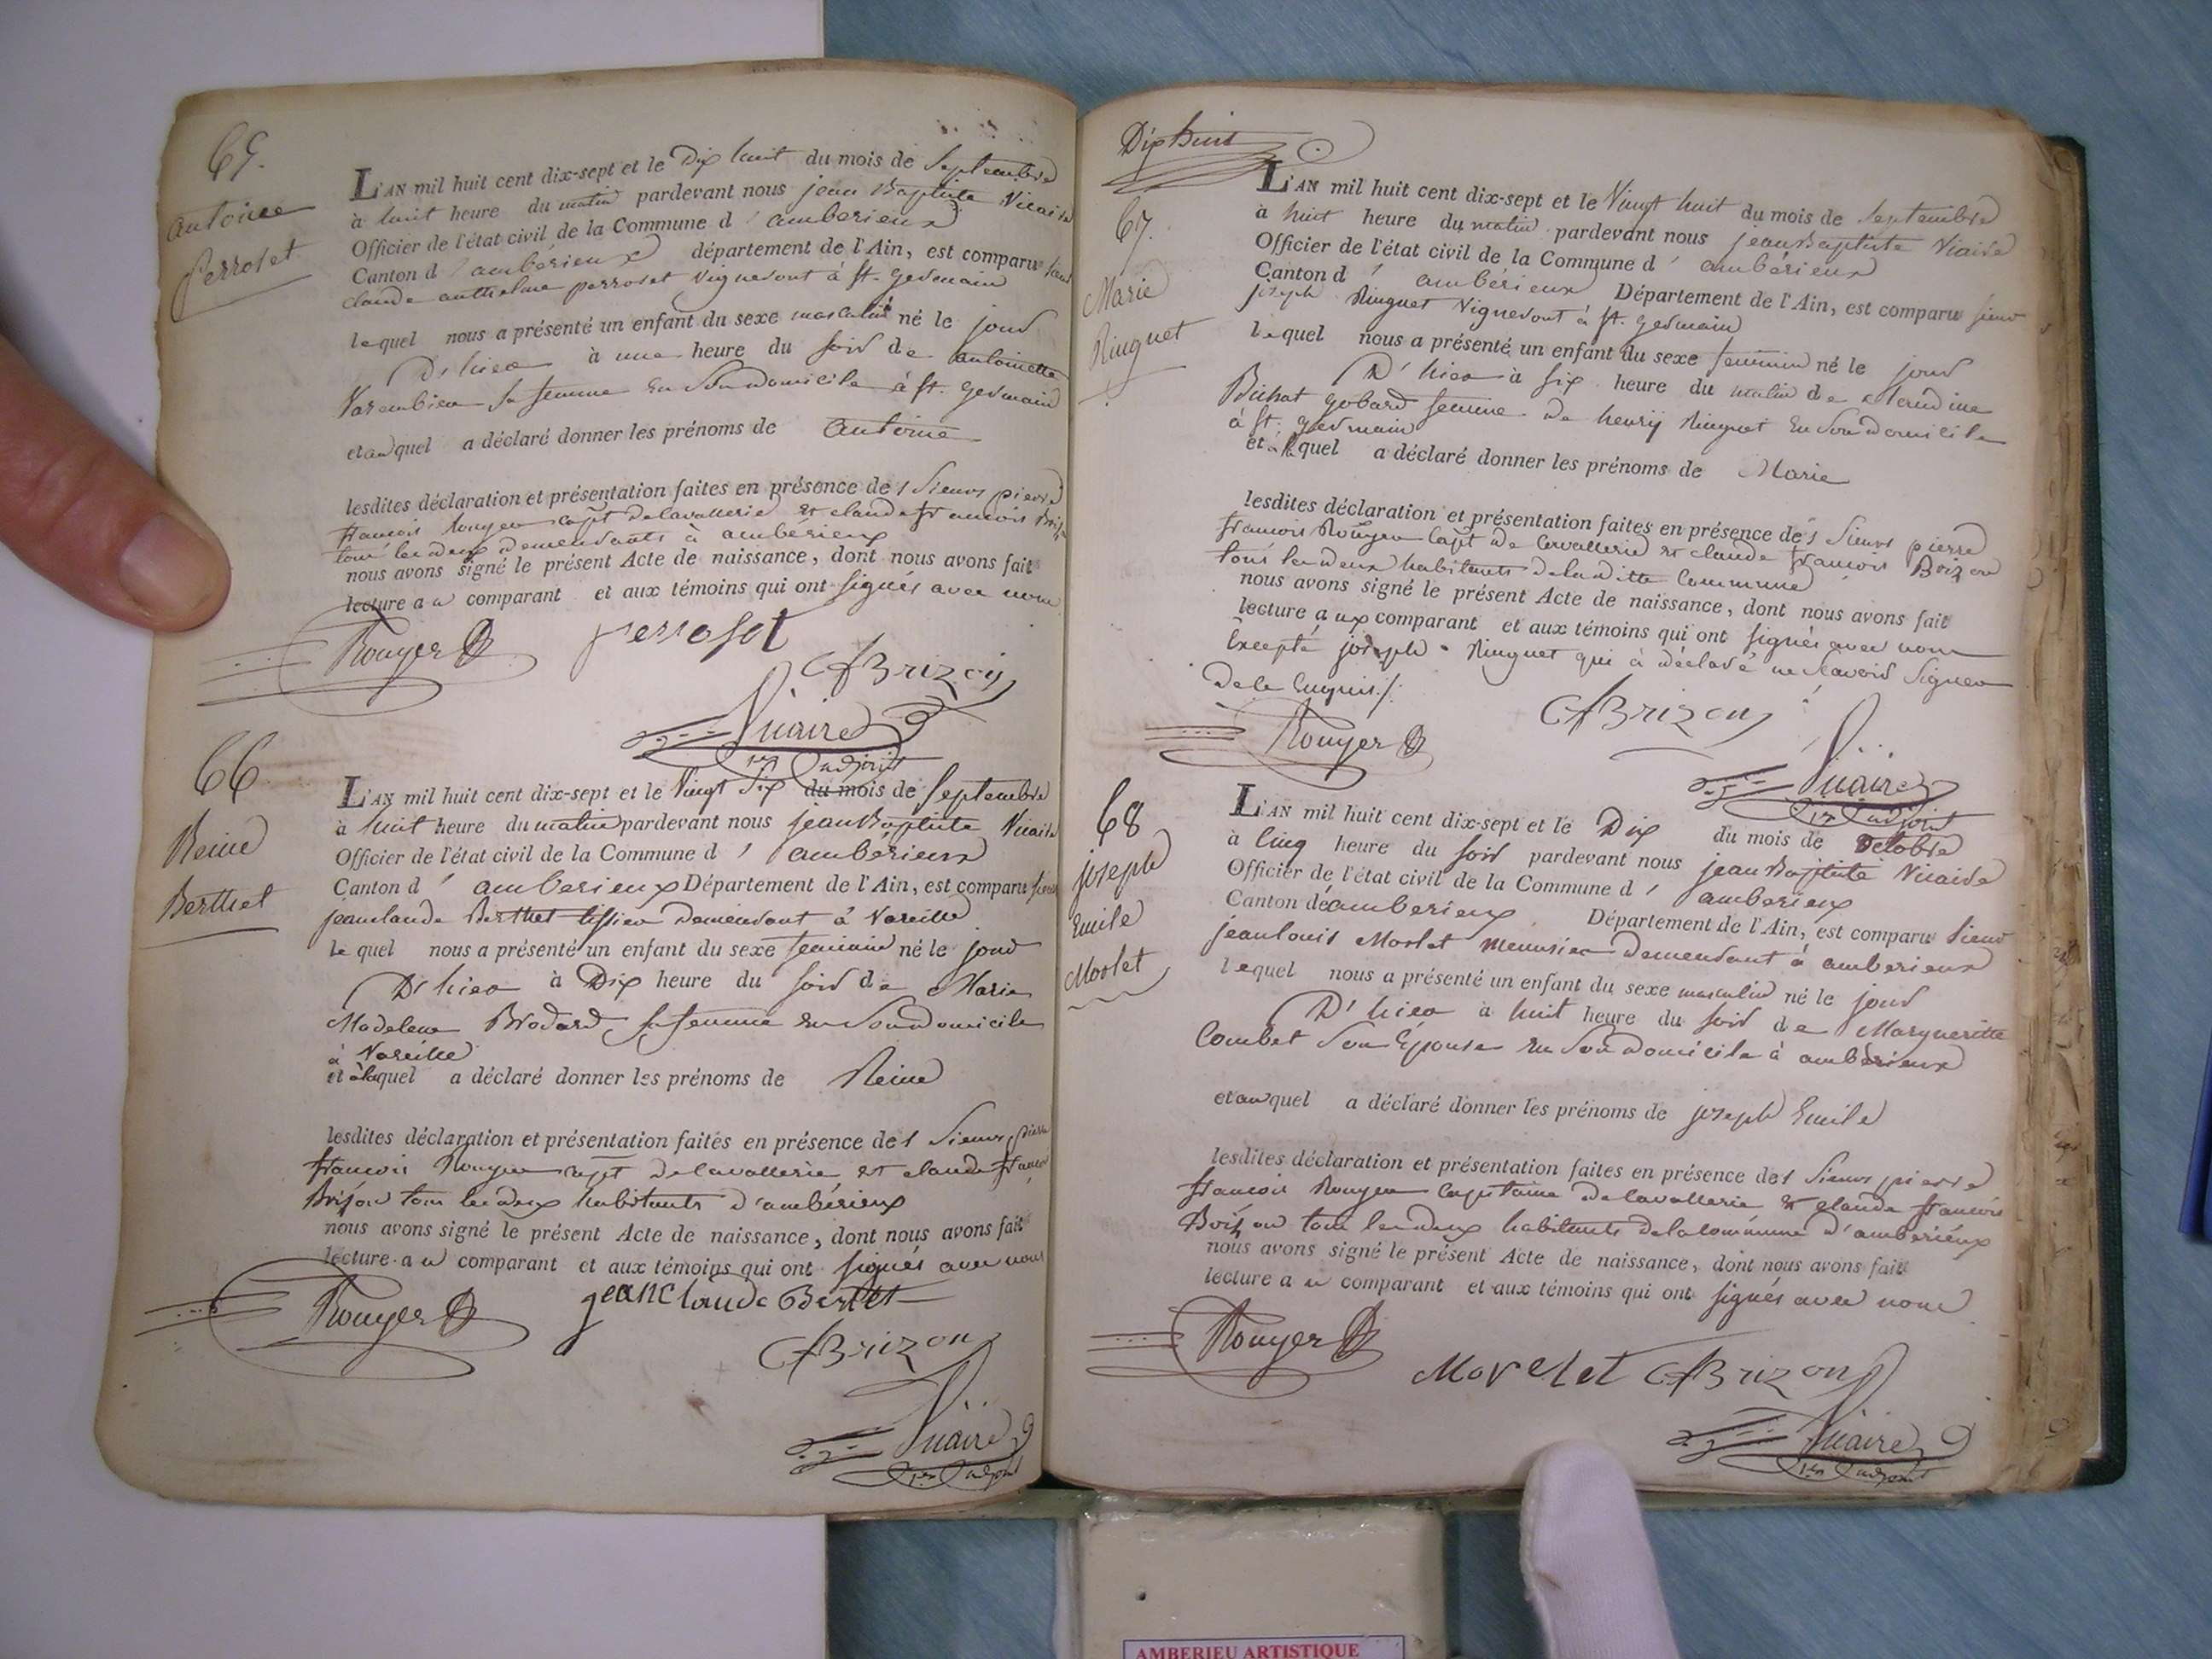 65.
antoine
Perroset
L'AN mil huit cent dix-sept et le Dix huit du mois de Septembre
à huit heure du matin pardevant nous jean Baptiste Vicaire
Officier de l'état civil de la Commune d'amberieux
Canton d'amberieux département de l'Ain, est comparu sieur
claude anthelme perroset Vigneront à st. germain
lequel nous a présenté un enfant du sexe masculin né le jour
D'hier à une heure du soir de antoinette
Varembier sa femme en Son domicile à st. germain
et auquel a déclaré donner les prénoms de antoine
lesdites déclaration et présentation faites en présence des Sieurs pierre
francois Rouyer capt de cavallerie et claude francois
tous les deux demeurants à ambérieux
nous avons signé le présent Acte de naissance, dont nous avons fait
lecture au comparant et aux témoins qui ont signés avec nous
Rouyer perroset
CfBrizon
Vicaire
1er adjoint
66
Reine
Berthet
L'AN mil huit cent dix-sept et le Vingt Six du mois de Septembre
à huit heure du matin pardevant nous jean Baptiste Vicaire
Officier de l'état civil de la Commune d'amberieux
Canton d'amberieux Département de l'Ain, est comparu sieur
jean claude Berthet tissier demeurant à Vareille
lequel nous a présenté un enfant du sexe feminin né le jour
D'hier à Dix heure du soir de Marie
Madelene Brodard, sa femme en Son domicile
à Vareille
et à laquel a déclaré donner les prénoms de Reine
lesdites déclaration et présentation faites en présence des Sieurs pierre
francois Rouyer capt de cavallerie et claude francois
Brison tous les deux habitants d'ambérieux
nous avons signé le présent Acte de naissance, dont nous avons fait
lecture au comparant et aux témoins qui ont signés avec nous
Rouyer jean Claude Bertet
CfBrizon
Vicaire
1er adjoint
Dix huit
67.
Marie
Ringuet
L'AN mil huit cent dix-sept et le Vingt huit du mois de Septembre
à huit heure du matin pardevant nous jean Baptiste Vicaire
Officier de l'état civil de la Commune d'ambérieux
Canton d'ambérieux Département de l'Ain, est comparu sieur
joseph Ringuet Vigneront à st. germain
lequel nous a présenté un enfant du sexe feminin né le jour
D'hier à six heure du matin de claudine
Bichat gobard femme de henry Ringuet en Son domicile
à st. germain
et à laquel a déclaré donner les prénoms de Marie
lesdites déclaration et présentation faites en présence des Sieurs pierre
francois Rouyer Capt de Cavallerie et claude francois Brizon
tous les deux habitants de la ditte Commune
nous avons signé le présent Acte de naissance, dont nous avons fait
lecture aux comparant et aux témoins qui ont signés avec nous
Excepté joseph Ringuet qui à déclaré ne Savoir Signer
de ce Enquis./.
CfBrizon
Rouyer
Vicaire
1er adjoint
68
joseph
Emile
Morlet
L'AN mil huit cent dix-sept et le Dix du mois de Octobre
à Cinq heure du soir pardevant nous jean Baptiste Vicaire
Officier de l'état civil de la Commune d'amberieux
Canton d'amberieux Département de l'Ain, est comparu Sieur
jean louis Morlet menusier demeurant à amberieux
lequel nous a présenté un enfant du sexe masculin né le jour
D'hier à huit heure du soir de Margueritte
Combet Son Épouse en Son domicile à ambérieux
et auquel a déclaré donner les prénoms de joseph Emile
lesdites déclaration et présentation faites en présence des Sieurs pierre
francois Rouyer Capitaine de Cavallerie et claude francois
Brizon tous les deux habitants de la commune d'ambérieux
nous avons signé le présent Acte de naissance, dont nous avons fait
lecture au comparant et aux témoins qui ont signés avec nous
Rouyer Morelet CfBrizon
Vicaire
1er adjoint
AMBERIEU ARTISTIQUE